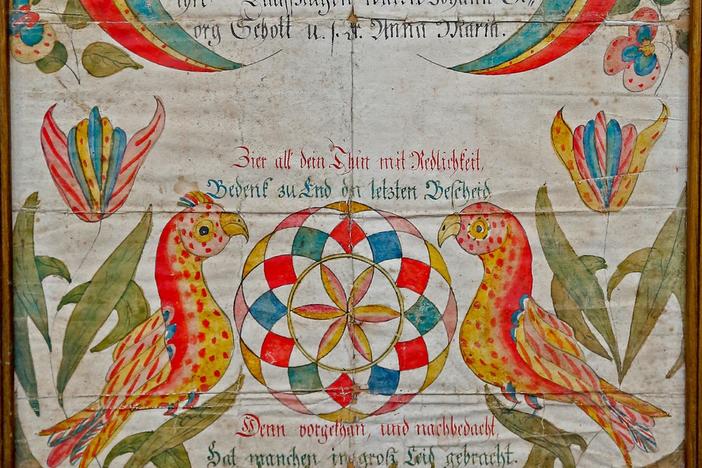 ihre Taufzeugen waren Johann Ge,,
org Schott u. s. F. Anna Maria.
Zier all dein Thun mit Redlichkeit,
Bedenk zu End dn letzten Bescheid
Denn vorgethan, und nachbedacht,
Hat manchen in groß Leid gebracht.